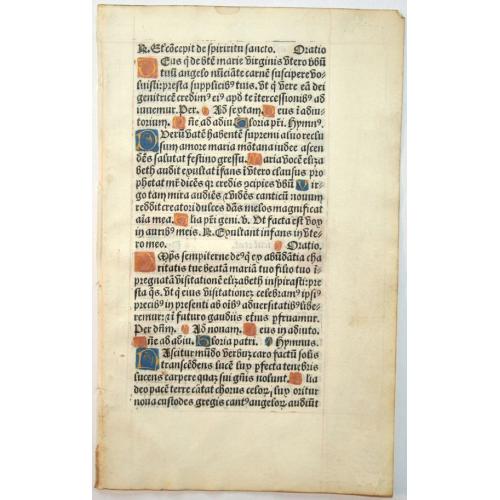 R. Et cõcepit de spiritu sancto. Oratio
Deus q̃ de btẽ marie virginis vtero vbũ
tuũ angelo nũciãte carnẽ suscipere vo-
luisti: presta supplicibꝰ tuis. vt q̃ vere eã dei
genitricẽ credimꝰ eiꝰ apd̃ te ĩtercessionibꝰ ad
iuuemur. Per. Ad sextam. Deus ĩ adiu
torium. Dñe ad adiu. Gloria pr̃i. Hymnꝰ.
Verũ vatẽ habentẽ supremi aluo reclu
sum amore maria mõtana iudee ascen
dẽs salutat festino gressu. Maria vocẽ eliza
beth audit exultat ĩfans ĩ vtero clausus pro
phetat mr̃ dicẽs qr̃ credis ↄcipies vbũ. Vir
go tam mira audiẽs ⁊ vidẽs canticũ nouum
reddit creatori dulces dãs melos magnificat
aĩa mea. Glia pr̃i geni. V. Vt facta est vox
in auribꝰ meis. R. Exultant infans in vte-
ro meo. Oratio.
Omps̃ sempiterne deꝰ q̃ ex abũdãtia cha
ritatis tue beatã mariã tuo filio tuo ĩ-
pregnatã visitationẽ elizabeth inspirasti: pre
sta q̃s. vt q̃ eius visitationẽ celebramꝰ ipsiꝰ
precibꝰ in presenti ab oĩbꝰ aduersitatibꝰ libe-
remur: ⁊ ĩ futuro gaudiis etnis ꝑfruamur.
Per dñm. Ad nonam. Deus in adiuto.
Dñe ad adiu. Gloria patri. Hymnus.
Nascitur mũdo verbũ ⁊ caro factũ solis
trãscẽdens lucẽ luy ꝑfecta tenebris
lucens carpere quaz sui gñis nolunt. Glia
deo pace terre cãtat chorus celoꝝ, luy oritur
noua custodes gregis cantꝰ angeloꝝ audiũt